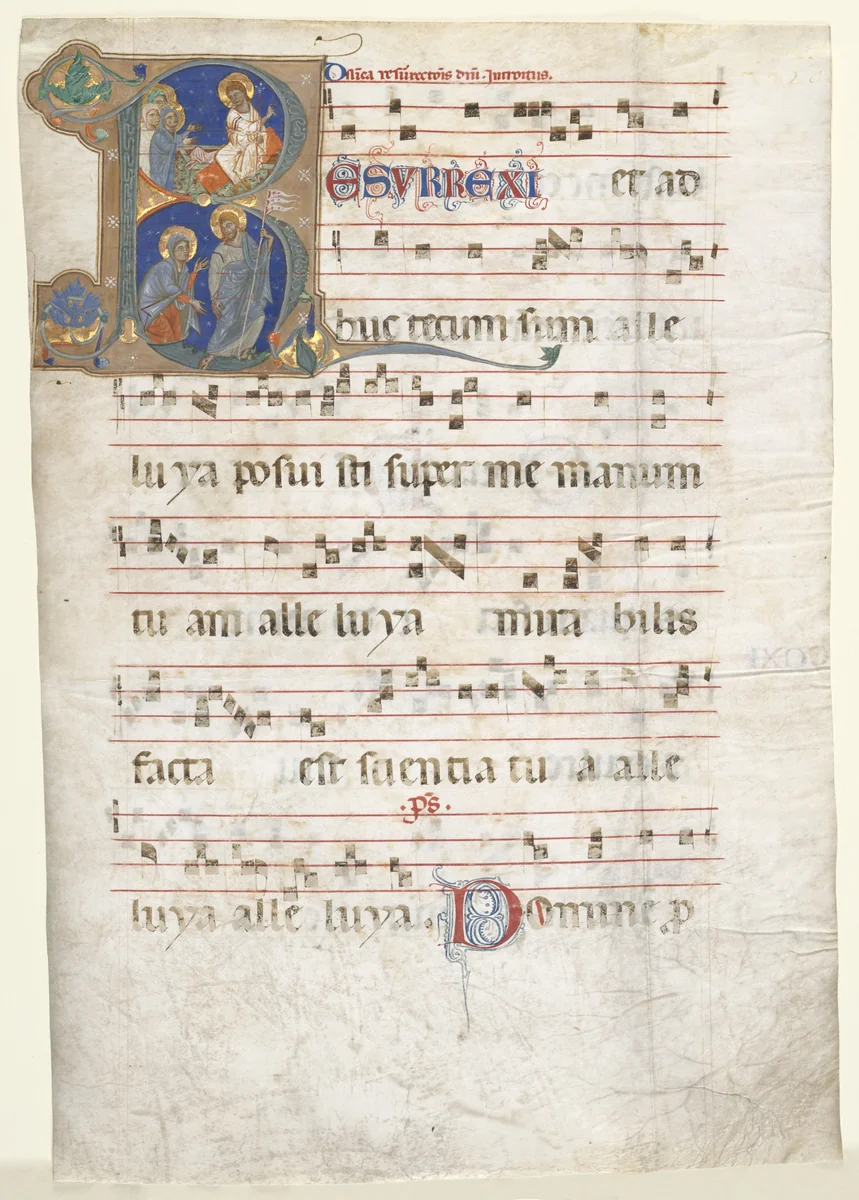 Dñica resurrectiõis dñi. Introitus.
RESURREXI et ad
huc tecum sum alle
lu ya posui sti super me manum
tu am alle lu ya mira bilis
facta est scientia tu a alle
.ps̃.
lu ya alle lu ya. Domine p